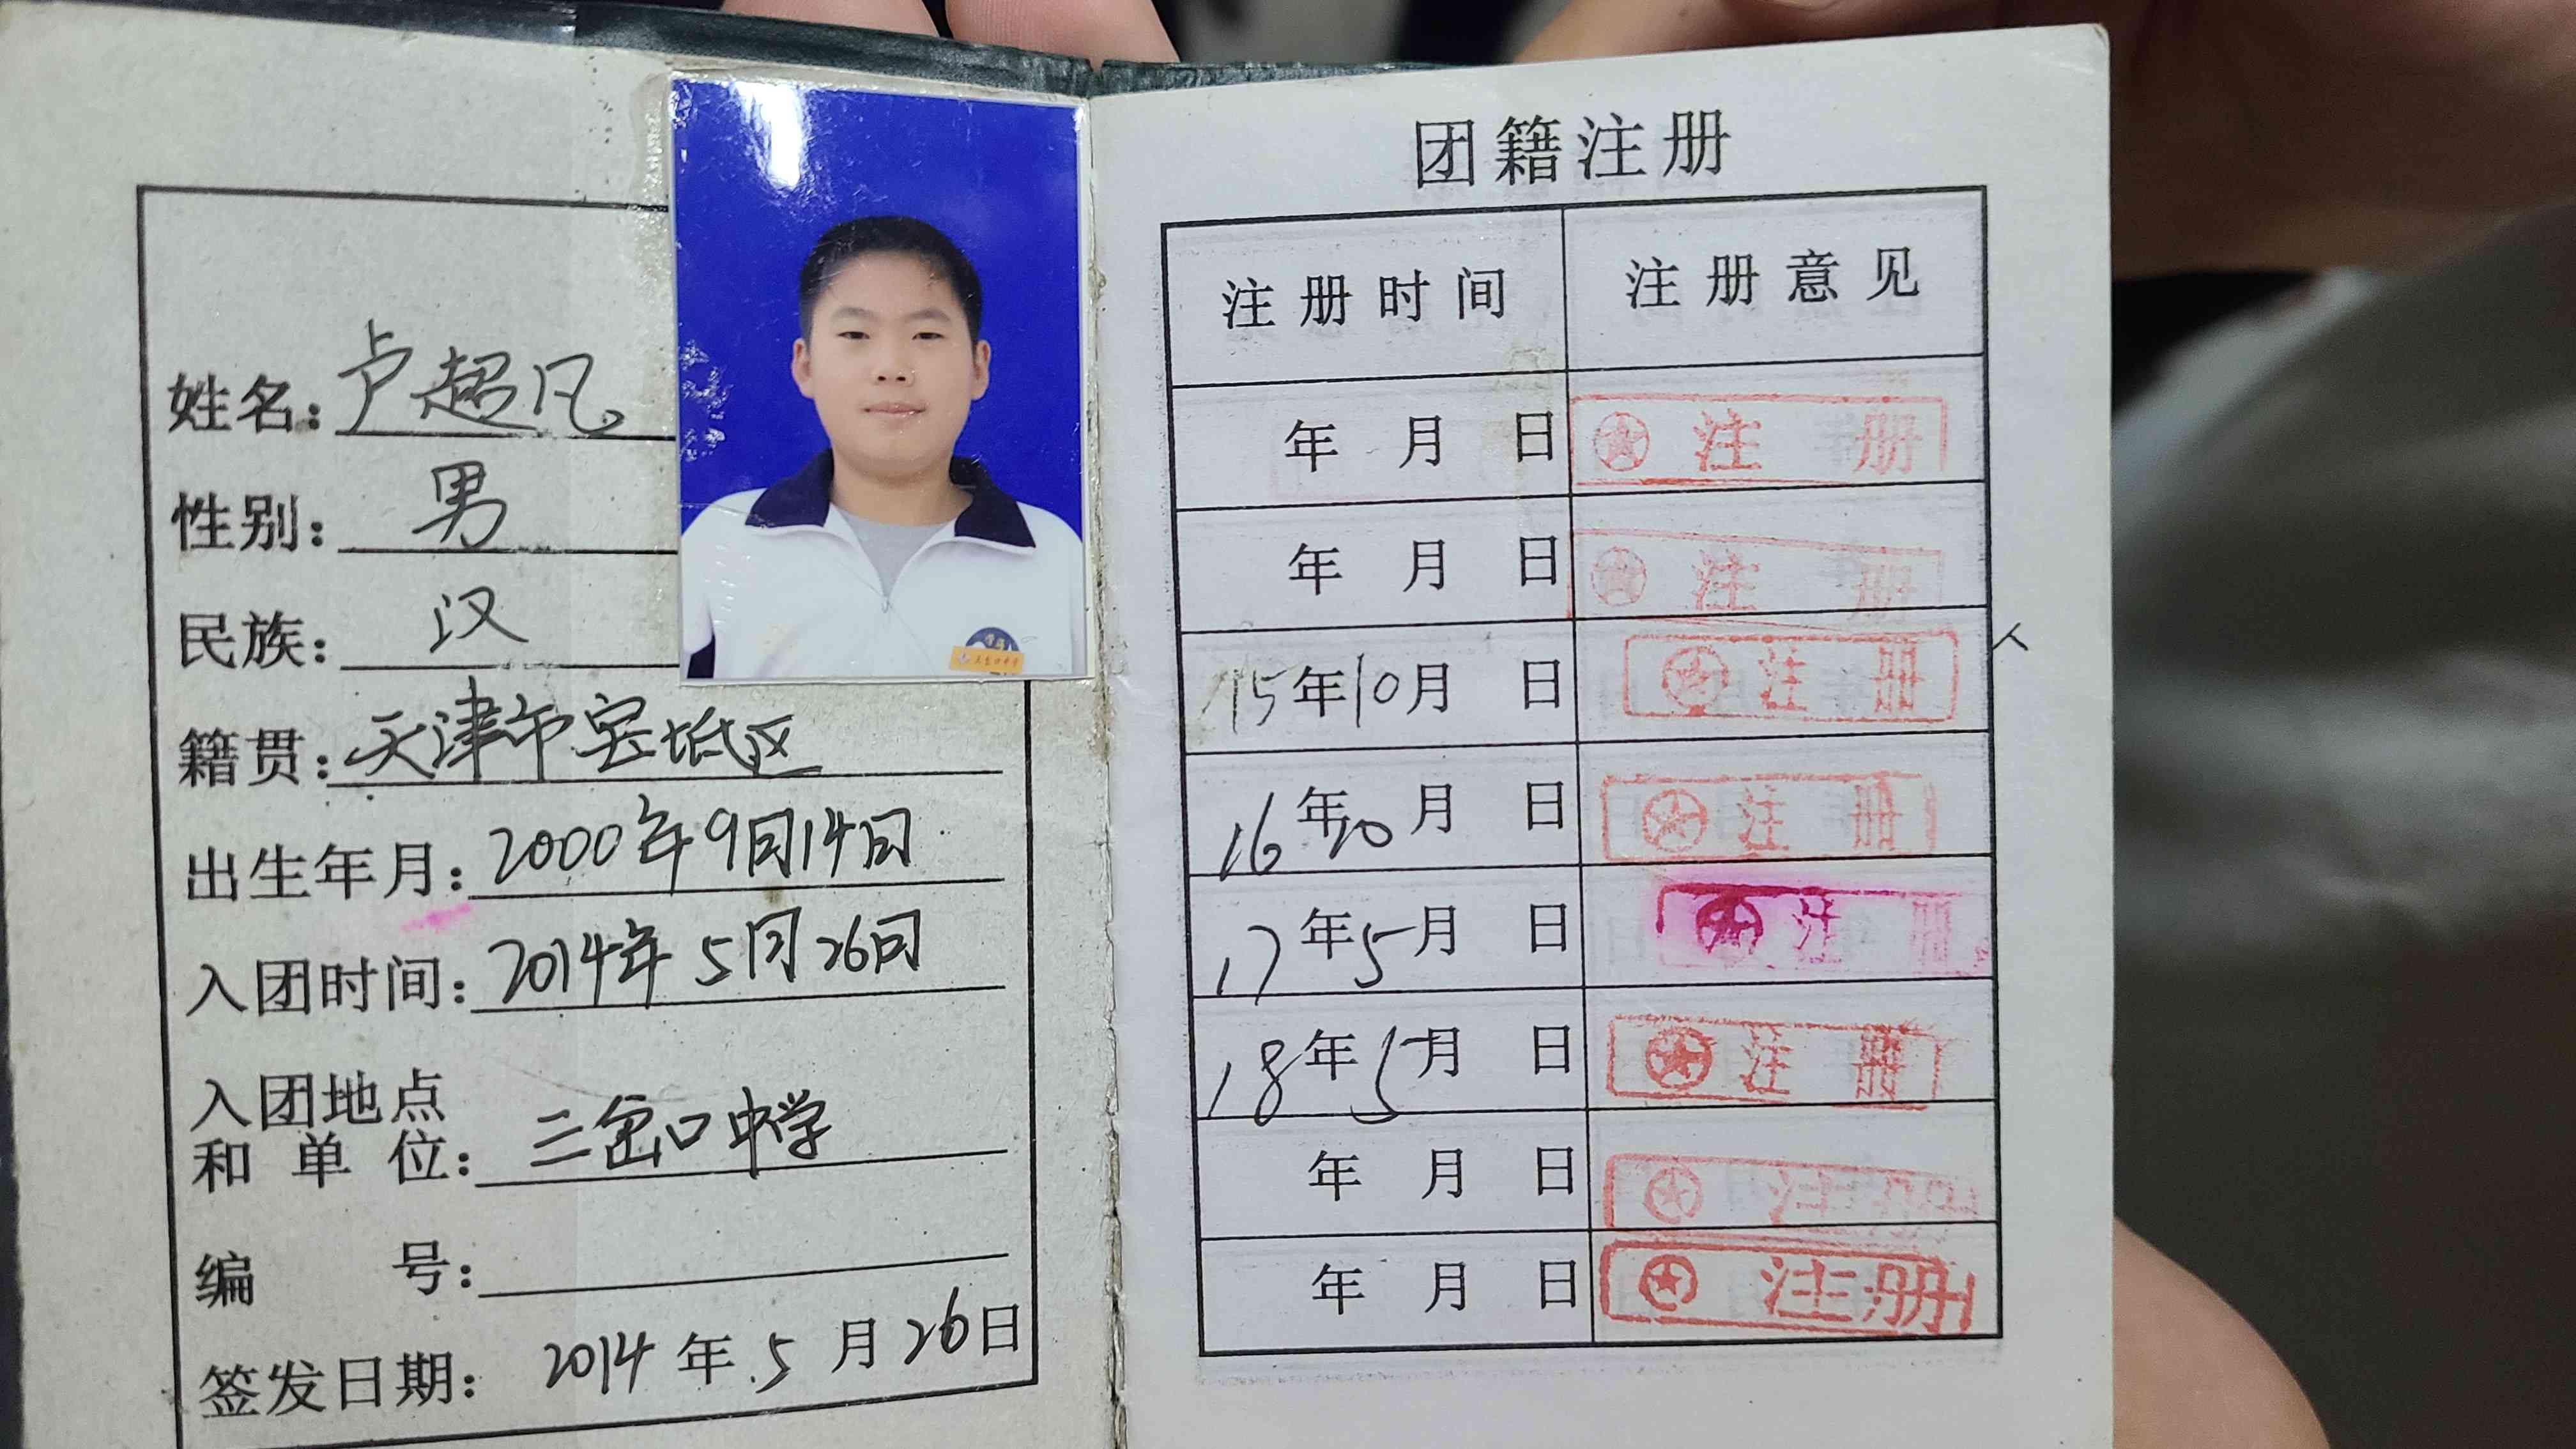 姓名：卢超凡
性别：男
民族：汉
籍贯：天津市宝坻区
出生年月：2000年9月14日
入团时间：2014年5月26日
入团地点
和单位：三岔口中学
编号：
签发日期：2014年5月26日
团籍注册
注册时间 注册意见
年 月 日 注册
年 月 日 注册
15年10月 日 注册
16年10月 日 注册
17年5月 日 注册
18年 月 日 注册
年 月 日 注册
年 月 日 注册